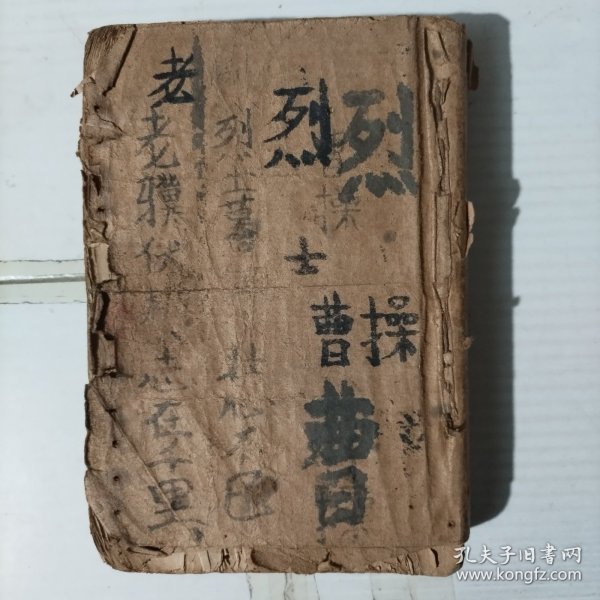 烈
操
烈
士
曹
曹
操
烈士暮
壮心不
老
老骥伏
志在千里
孔夫子旧书网
www.kongfz.com